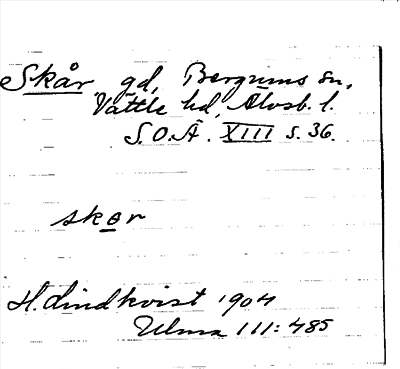 Skår gd, Bergums sn,
Vättle hd, Älvsb. l.
S.O.Ä. XIII s. 36.
skor
H. Lindkvist 1904
Ulma 111:485